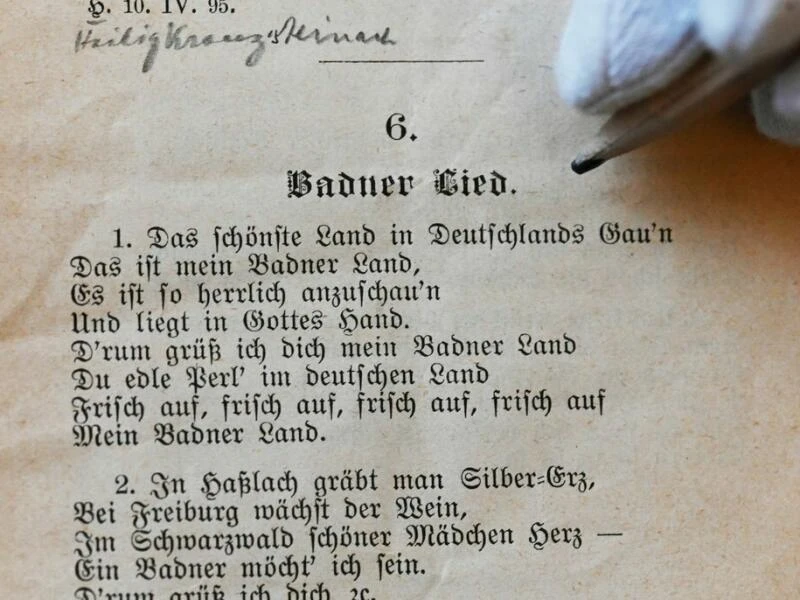 H. 10. IV. 95.
Heilig Kreuz Steinach
6.
Badner Lied.
1. Das schönste Land in Deutschlands Gau'n
Das ist mein Badner Land,
Es ist so herrlich anzuschau'n
Und liegt in Gottes Hand.
D'rum grüß ich dich mein Badner Land
Du edle Perl' im deutschen Land
Frisch auf, frisch auf, frisch auf, frisch auf
Mein Badner Land.
2. In Haßlach gräbt man Silber-Erz,
Bei Freiburg wächst der Wein,
Im Schwarzwald schöner Mädchen Herz —
Ein Badner möcht' ich sein.
D'rum grüß ich dich ꝛc.